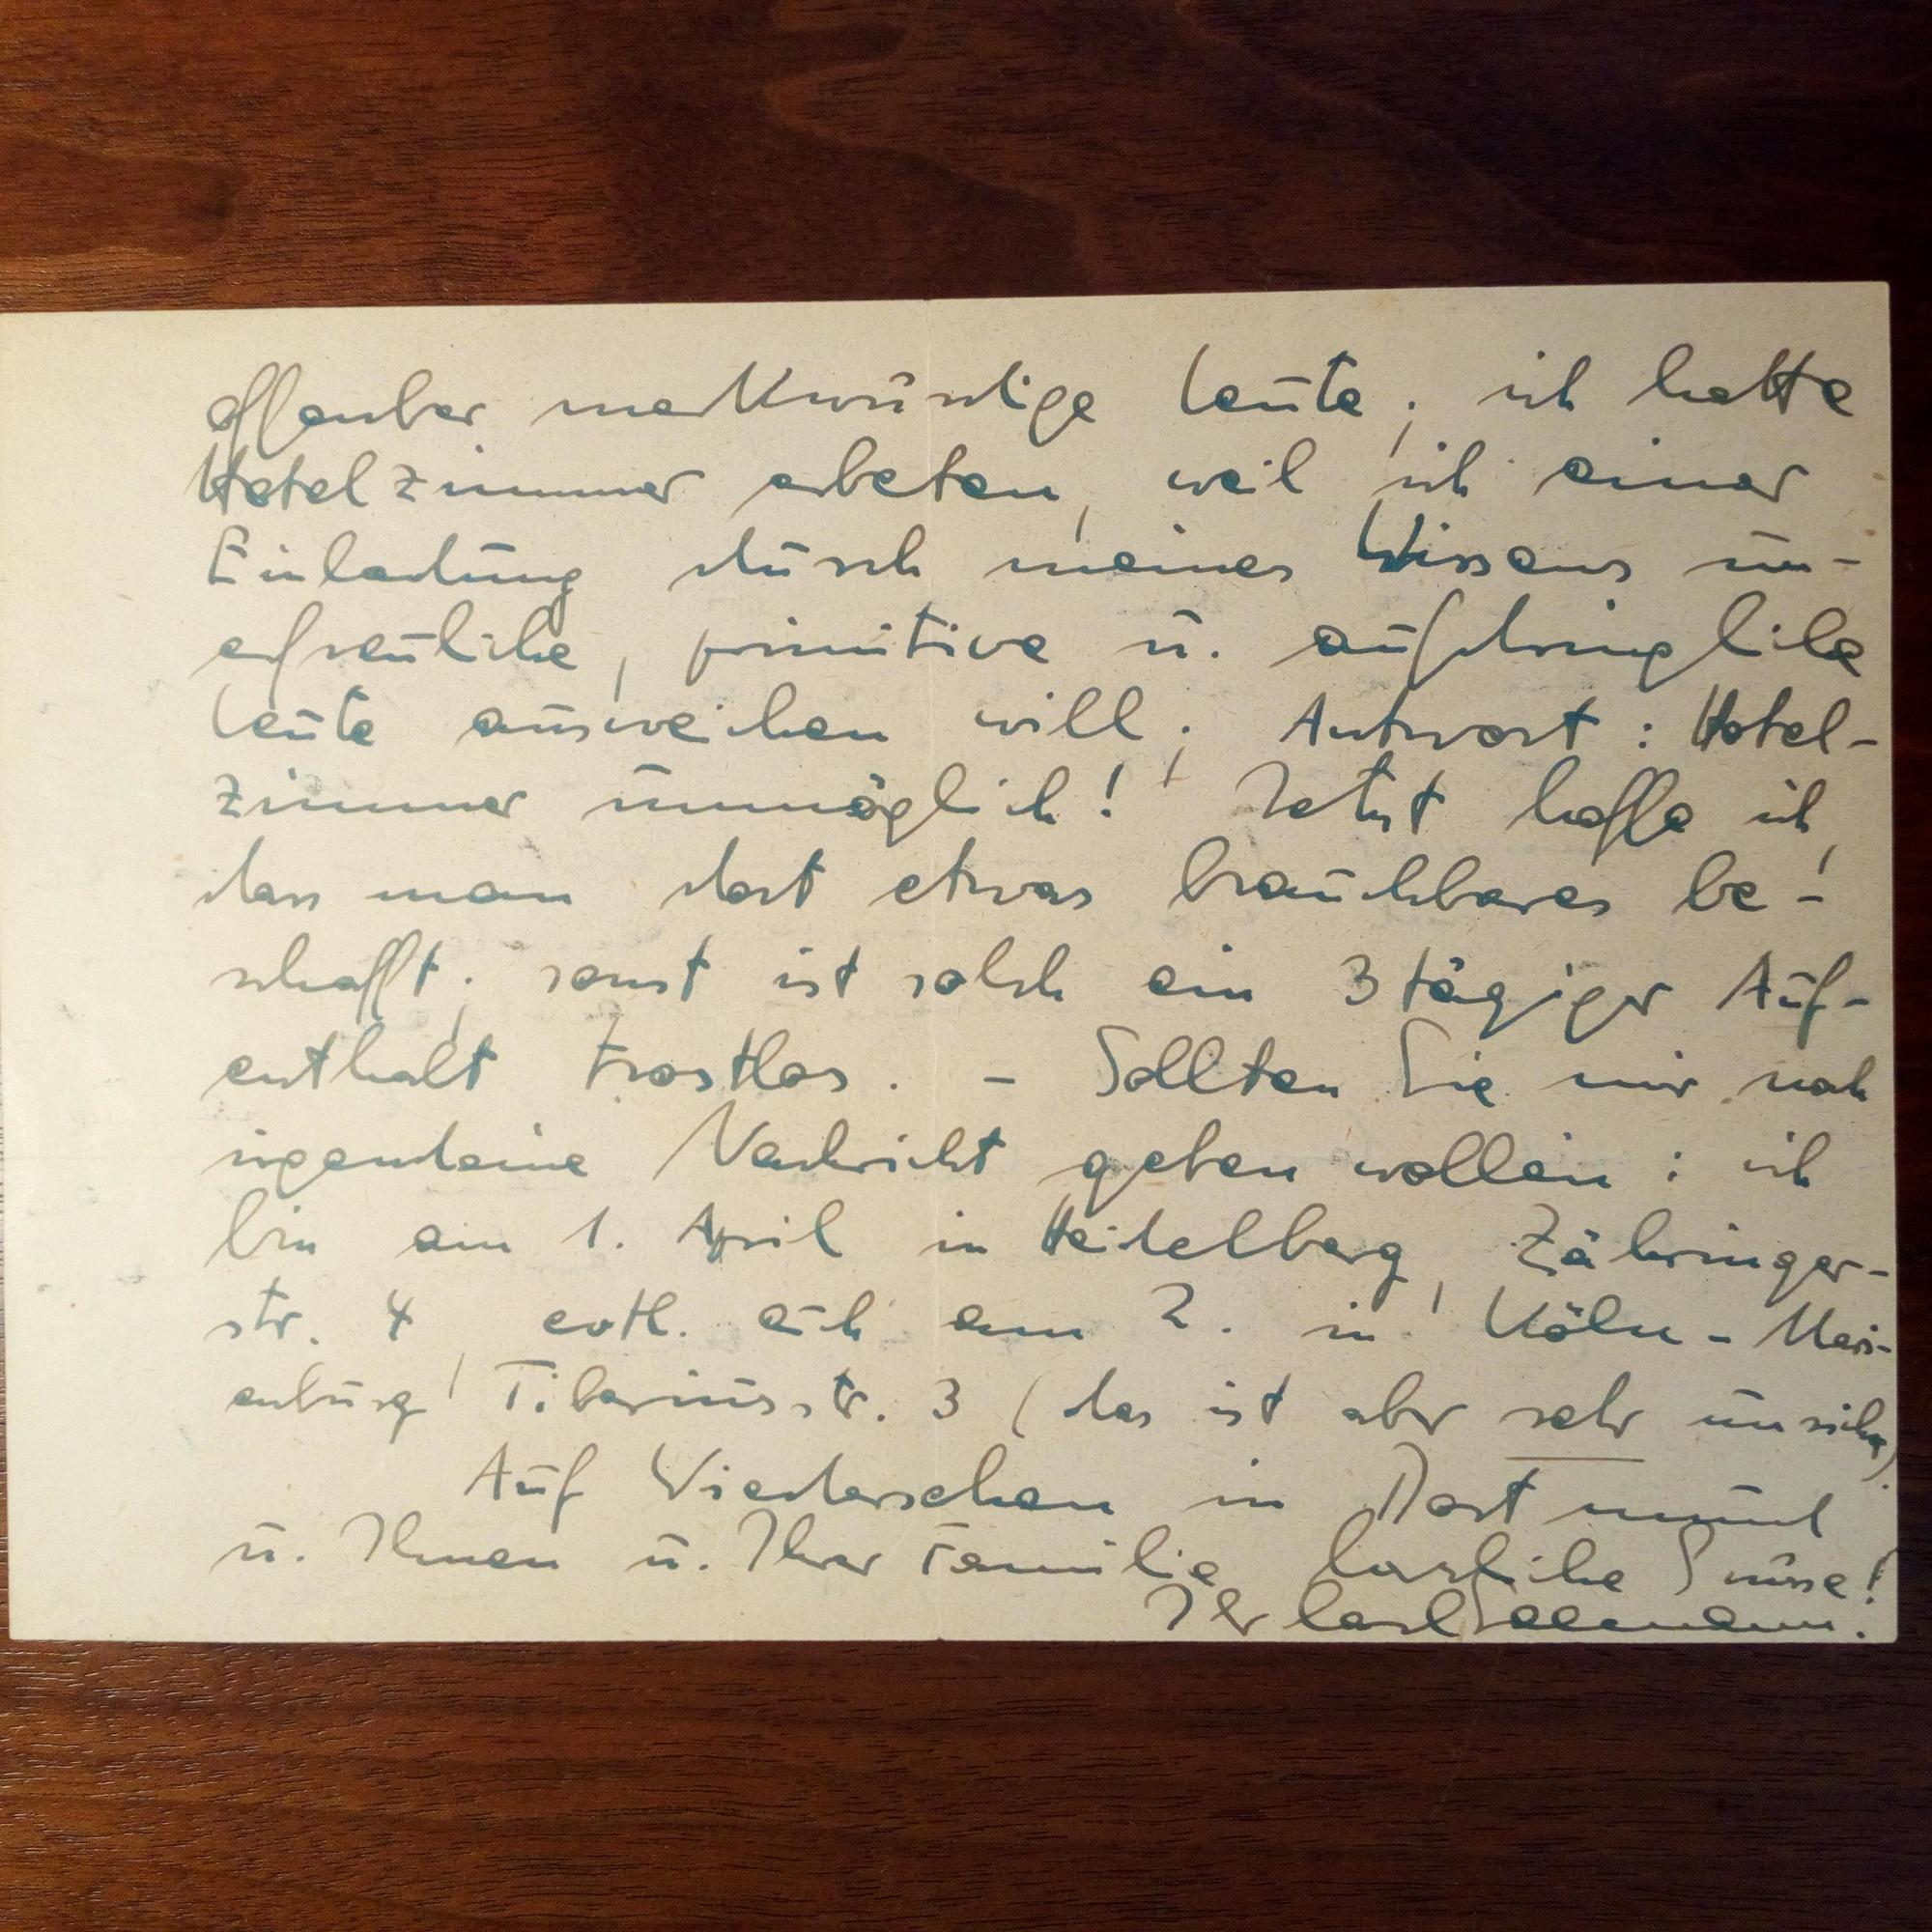 offenbar merkwürdige Leute; ich hatte
Hotelzimmer erbeten, weil ich einer
Einladung durch meines Wissens un-
erfreuliche, primitive u. aufdringliche
Leute ausweichen will; Antwort: Hotel-
zimmer unmöglich! Jetzt hoffe ich,
dass man dort etwas brauchbares be-
schafft; sonst ist solch ein 3tägiger Auf-
enthalt trostlos. - Sollten Sie mir noch
irgendeine Nachricht geben wollen: ich
bin am 1. April in Heidelberg, Zähringer-
str. 4, evtl. auch am 2. in Köln-Mari-
enburg, Tiberiusstr. 3 (das ist aber sehr unsicher).
Auf Wiedersehen in Dortmund
u. Ihnen u. Ihrer Familie herzliche Grüsse!
Ihr Carl Seemann.